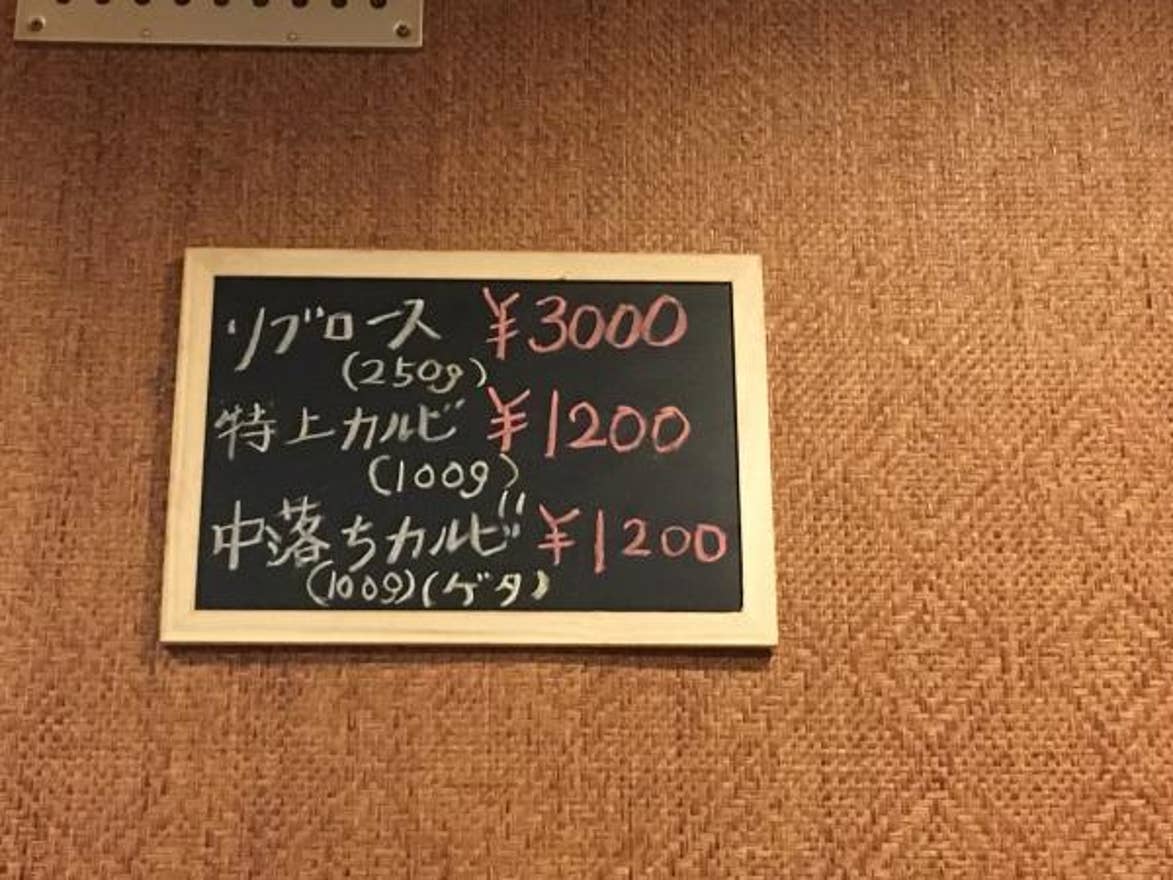 リブロース ¥3000
(250g)
特上カルビ ¥1200
(100g)
中落ちカルビ ¥1200
(100g)(ゲタ)